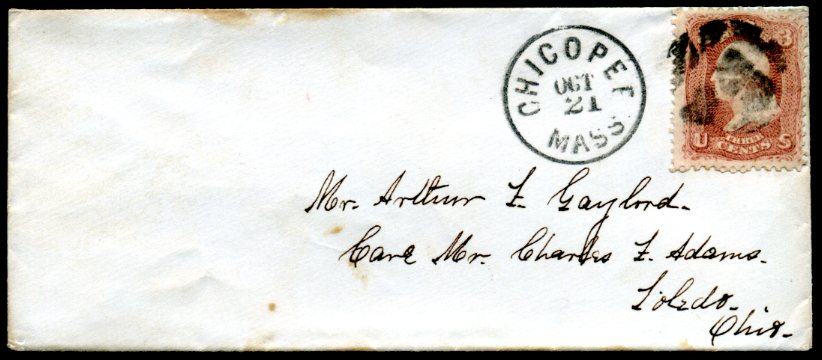 CHICOPEE
OCT
21
MASS
3
U THREE S
CENTS
Mr. Arthur F. Gaylord.
Care Mr. Charles F. Adams.
Toledo.
Ohio.